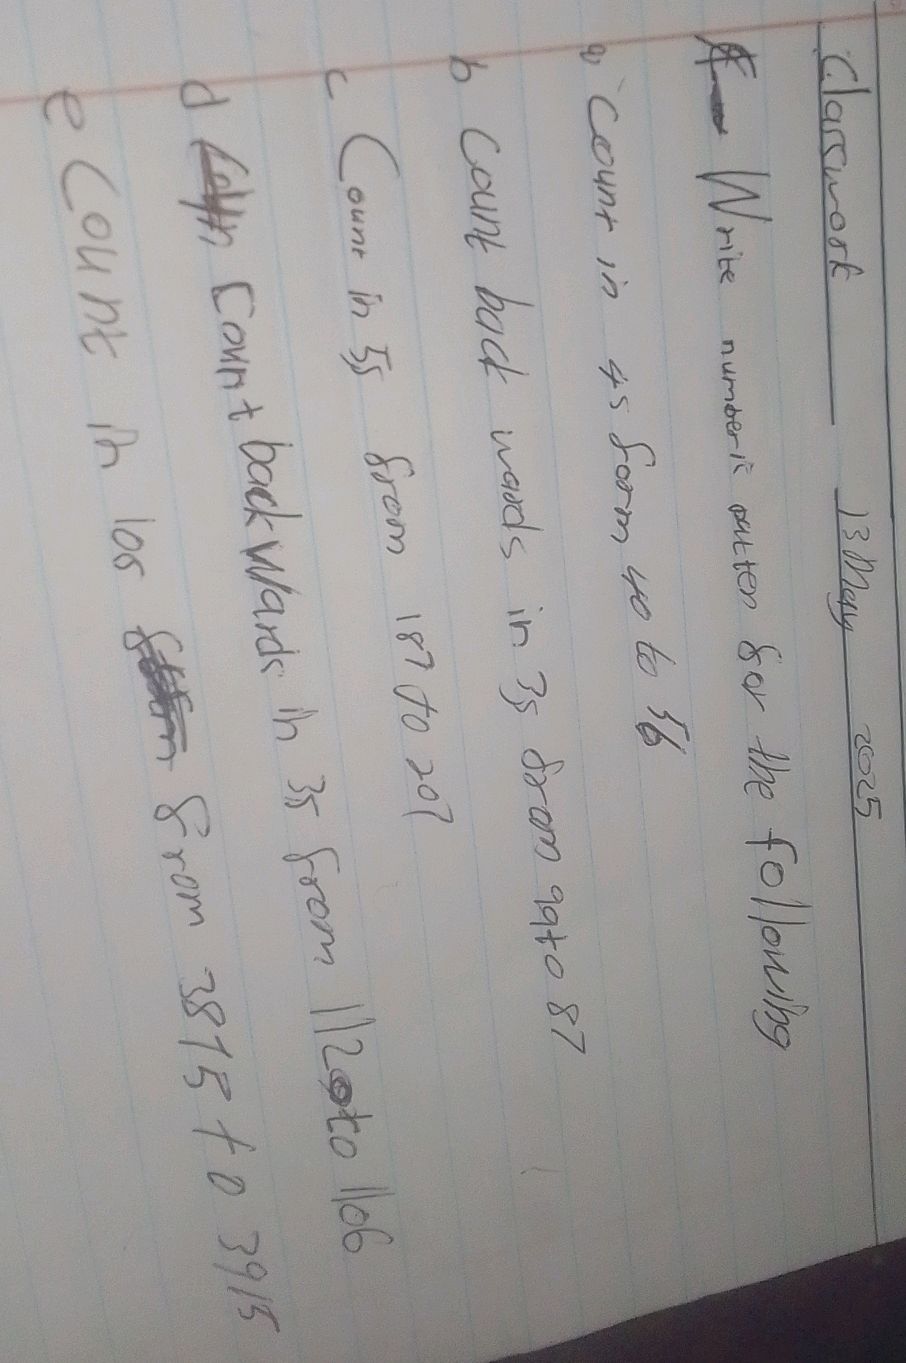 Classwork 13 May 2025
Write numeric patten for the following
a Count in 4s form 40 to 56
b Count back wards in 3s from 99 to 87
c Count in 5s from 187 to 207
d Count back wards in 3s from 112 to 1106
e Count in 10s from 3875 to 3915